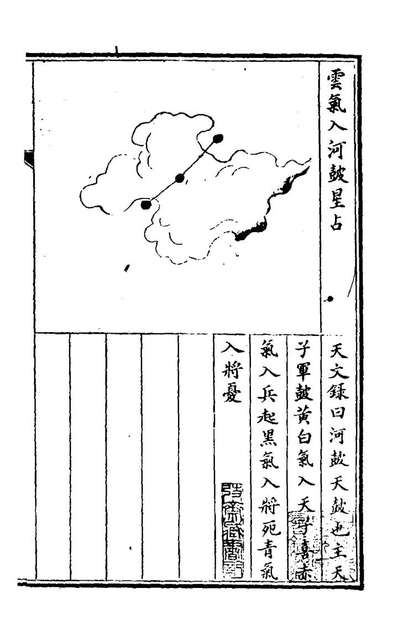 雲氣入河皷星占
天文録曰河皷天皷也主天
子軍皷黄白氣入天子喜赤
氣入兵起黒氣入將死青氣
入將憂